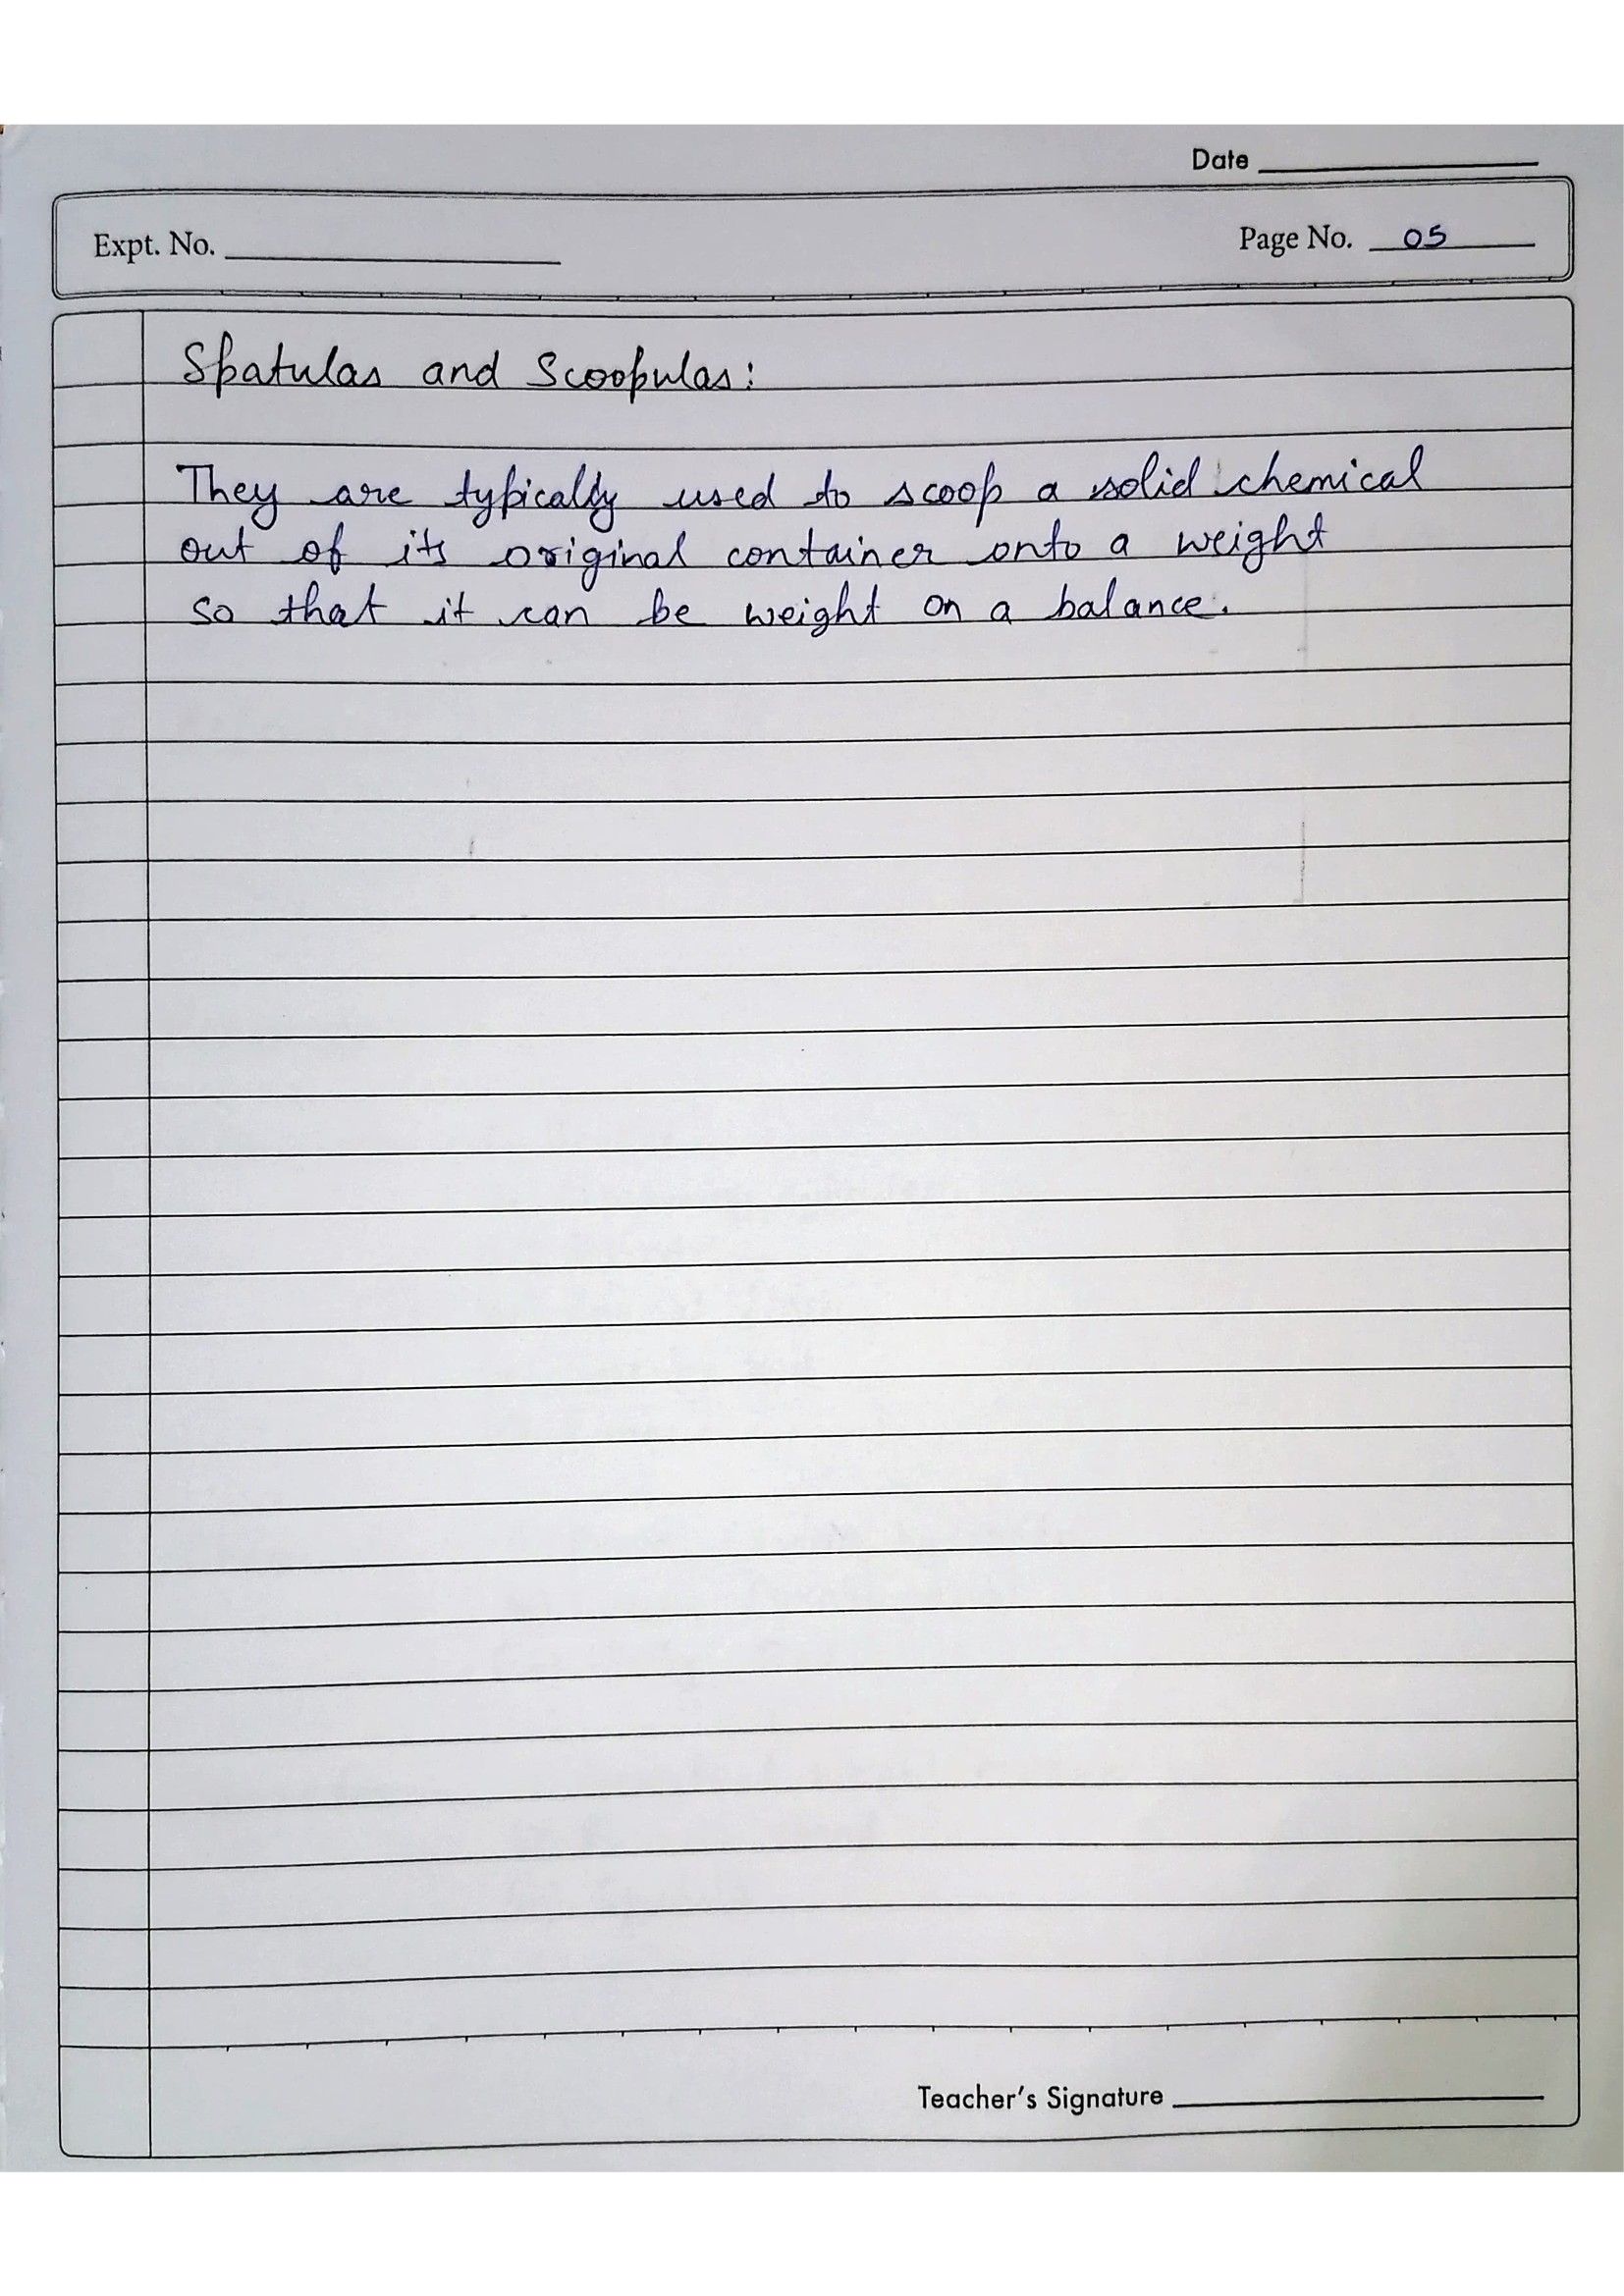 Date
Expt. No.
Page No. 05
Spatulas and Scoopulas:
They are typically used to scoop a solid chemical
out of its original container onto a weight
so that it can be weight on a balance.
Teacher's Signature